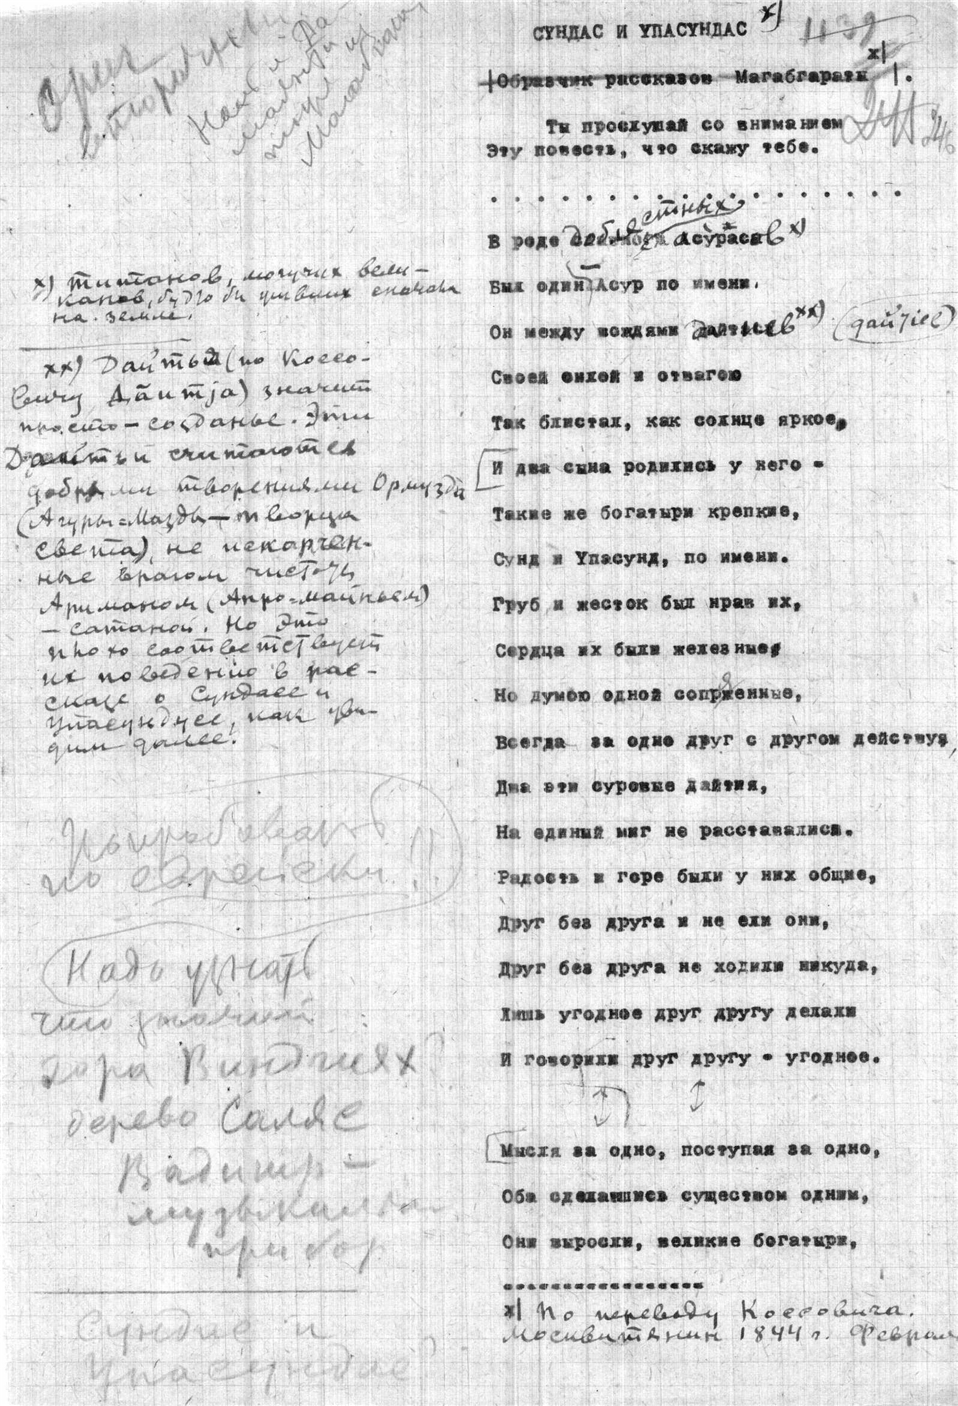 СУНДАС И УПАСУНДАС x)
1139
Образчик рассказов Магабгараты x) .
Ты прослушай со вниманием
Эту повесть, что скажу тебе.
. . . . . . . . . . . . . . . . . .
В роде доблестных Асурасов x)
Был один Асур по имени.
Он между вождями дайтиев xx) (дайтiев)
Своей силой и отвагою
Так блистал, как солнце яркое,
И два сына родились у него -
Такие же богатыри крепкие,
Сунд и Упасунд, по имени.
Груб и жесток был нрав их,
Сердца их были железные,
Но думою одной сопряженные,
Всегда за одно друг с другом действуя,
Два эти суровые дайтия,
На единый миг не расставалися.
Радость и горе были у них общие,
Друг без друга и не ели они,
Друг без друга не ходили никуда,
Лишь угодное друг другу делали
И говорили друг другу - угодное.
Мысля за одно, поступая за одно,
Оба сделавшись существом одним,
Они выросли, великие богатыри,
x) По переводу Коссовича.
Москвитянин 1844 г. Феврал
x) титанов, могучих вели-
канов, будто бы живших сначала
на земле.
xx) Дайтьи (по Коссо-
вичу Дāитја) значит
просто - созданье. Эти
Дайтьи считаются
добрыми творениями Ормузда
(Агуры-Мазды - творца
света), не искажен-
ные врагом чистоты
Ариманом (Анро-майньем)
- сатаной. Но это
плохо соответствует
их поведению в рас-
сказе о Сундасе и
Упасундусе, как уви-
дим далее!
Попробовать
по еврейски!!
Надо узнать
что значит
гора Виндгиях
дерево Саляс
Вадитр -
музыкальн.
прибор
Сундас и
Упасундас